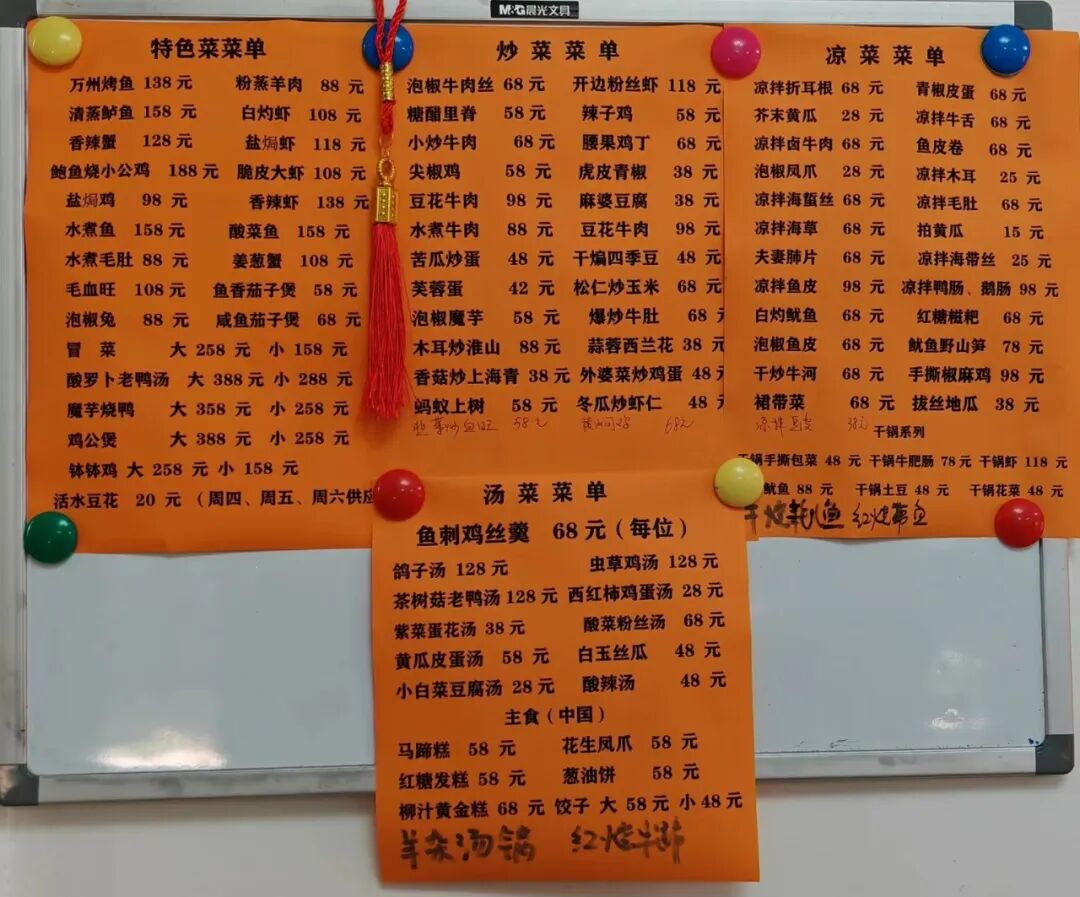 M&G晨光文具
特色菜菜单
万州烤鱼 138元 粉蒸羊肉 88 元
清蒸鲈鱼 158 元 白灼虾 108 元
香辣蟹 128 元 盐焗虾 118 元
鲍鱼烧小公鸡 188元 脆皮大虾 108 元
盐焗鸡 98 元 香辣虾 138 元
水煮鱼 158元 酸菜鱼 158 元
水煮毛肚 88 元 姜葱蟹 108 元
毛血旺 108元 鱼香茄子煲 58 元
泡椒兔 88 元 咸鱼茄子煲 68 元
冒 菜 大 258 元 小 158 元
酸萝卜老鸭汤 大 388元 小 288 元
魔芋烧鸭 大 358 元 小 258 元
鸡公煲 大 388 元 小 258 元
钵钵鸡 大 258 元 小 158 元
活水豆花 20 元 (周四、周五、周六供应
炒 菜 菜 单
泡椒牛肉丝 68 元 开边粉丝虾 118 元
糖醋里脊 58 元 辣子鸡 58 元
小炒牛肉 68 元 腰果鸡丁 68 元
尖椒鸡 58 元 虎皮青椒 38 元
豆花牛肉 98 元 麻婆豆腐 38 元
水煮牛肉 88 元 豆花牛肉 98 元
苦瓜炒蛋 48 元 干煸四季豆 48 元
芙蓉蛋 42 元 松仁炒玉米 68 元
泡椒魔芋 58 元 爆炒牛肚 68
木耳炒淮山 88 元 蒜蓉西兰花 38 元
香菇炒上海青 38 元 外婆菜炒鸡蛋 48
蚂蚁上树 58 元 冬瓜炒虾仁 48
58元 68元
凉 菜 菜 单
凉拌折耳根 68 元 青椒皮蛋 68 元
芥末黄瓜 28 元 凉拌牛舌 68 元
凉拌卤牛肉 68 元 鱼皮卷 68 元
泡椒凤爪 28 元 凉拌木耳 25 元
凉拌海蜇丝 68 元 凉拌毛肚 68 元
凉拌海草 68 元 拍黄瓜 15 元
夫妻肺片 68 元 凉拌海带丝 25 元
凉拌鱼皮 98 元 凉拌鸭肠、鹅肠 98 元
白灼鱿鱼 68 元 红糖糍粑 68 元
泡椒鱼皮 68 元 鱿鱼野山笋 78 元
干炒牛河 68 元 手撕椒麻鸡 98 元
裙带菜 68 元 拔丝地瓜 38 元
凉拌 38元
干锅系列
干锅手撕包菜 48 元 干锅牛肥肠 78 元 干锅虾 118 元
鱿鱼 88 元 干锅土豆 48 元 干锅花菜 48 元
干烧 鱼 红烧带鱼
汤 菜 菜 单
鱼刺鸡丝羹 68 元(每位)
鸽子汤 128 元 虫草鸡汤 128 元
茶树菇老鸭汤 128 元 西红柿鸡蛋汤 28 元
紫菜蛋花汤 38 元 酸菜粉丝汤 68 元
黄瓜皮蛋汤 58 元 白玉丝瓜 48 元
小白菜豆腐汤 28 元 酸辣汤 48 元
主食(中国)
马蹄糕 58 元 花生凤爪 58 元
红糖发糕 58 元 葱油饼 58 元
椰汁黄金糕 68 元 饺子 大 58 元 小 48 元
羊杂汤锅 红烧牛蹄